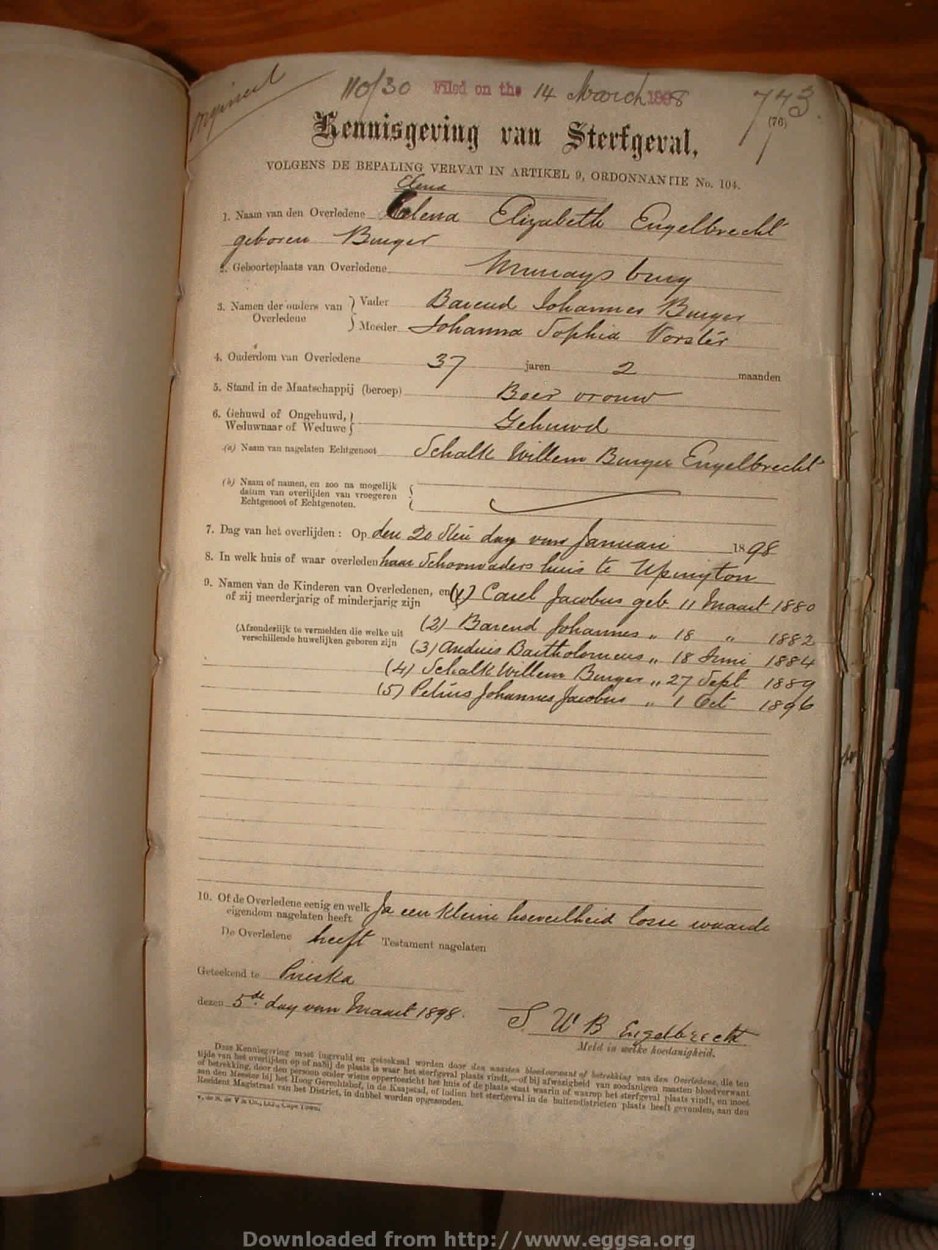 Original
110/30 Filed on the 14 March 1898 773
(76)
Kennisgeving van Sterfgeval,
VOLGENS DE BEPALING VERVAT IN ARTIKEL 9, ORDONNANTIE No. 104.
Elena
1. Naam van den Overledene Elena Elizabeth Engelbrecht
geboren Burger
2. Geboorteplaats van Overledene Murraysburg
3. Namen der ouders van Overledene } Vader Barend Johannes Burger
Moeder Johanna Sophia Vorster
4. Ouderdom van Overledene 37 jaren 2 maanden
5. Stand in de Maatschappij (beroep) Boer vrouw
6. Gehuwd of Ongehuwd, Weduwnaar of Weduwe } Gehuwd
(a) Naam van nagelaten Echtgenoot Schalk Willem Burger Engelbrecht
(b) Naam of namen, en zoo na mogelijk
datum van overlijden van vroegeren
Echtgenoot of Echtgenoten.
7. Dag van het overlijden: Op den 20 sten dag van Januari 1898
8. In welk huis of waar overleden haar Schoonvaders huis te Upington
9. Namen van de Kinderen van Overledenen, en (1) Carel Jacobus geb. 11 Maart 1880
of zij meerderjarig of minderjarig zijn
(2) Barend Johannes " 18 " 1882
(Afzonderlijk te vermelden die welke uit
verschillende huwelijken geboren zijn
(3) Andries Bartholomeus " 18 Juni 1884
(4) Schalk Willem Burger " 27 Sept 1889
(5) Petrus Johannes Jacobus " 1 Oct 1896
10. Of de Overledene eenig en welk
eigendom nagelaten heeft Ja een kleine hoeveelheid losse waarde
De Overledene heeft Testament nagelaten
Geteekend te Prieska
dezen 5de dag van Maart 1898.
S W B Engelbrecht
Meld in welke hoedanigheid.
Deze Kennisgeving moet ingevuld en geteekend worden door den naasten bloedverwant of betrekking van den Overledene, die ten
tijde van het overlijden op of nabij de plaats is waar het sterfgeval plaats vindt,—of bij afwezigheid van zoodanigen naasten bloedverwant
of betrekking, door den persoon onder wiens oppertoezicht het huis of de plaats staat waarin of waarop het sterfgeval plaats vindt, en moet
aan den Meester bij het Hoog Gerechtshof, in de Kaapstad, of indien het sterfgeval in de buitendistricten plaats heeft gevonden, aan den
Resident Magistraat van het District, in dubbel worden opgezonden.
V. de S. de V & Co., Ltd., Cape Town
Downloaded from http://www.eggsa.org